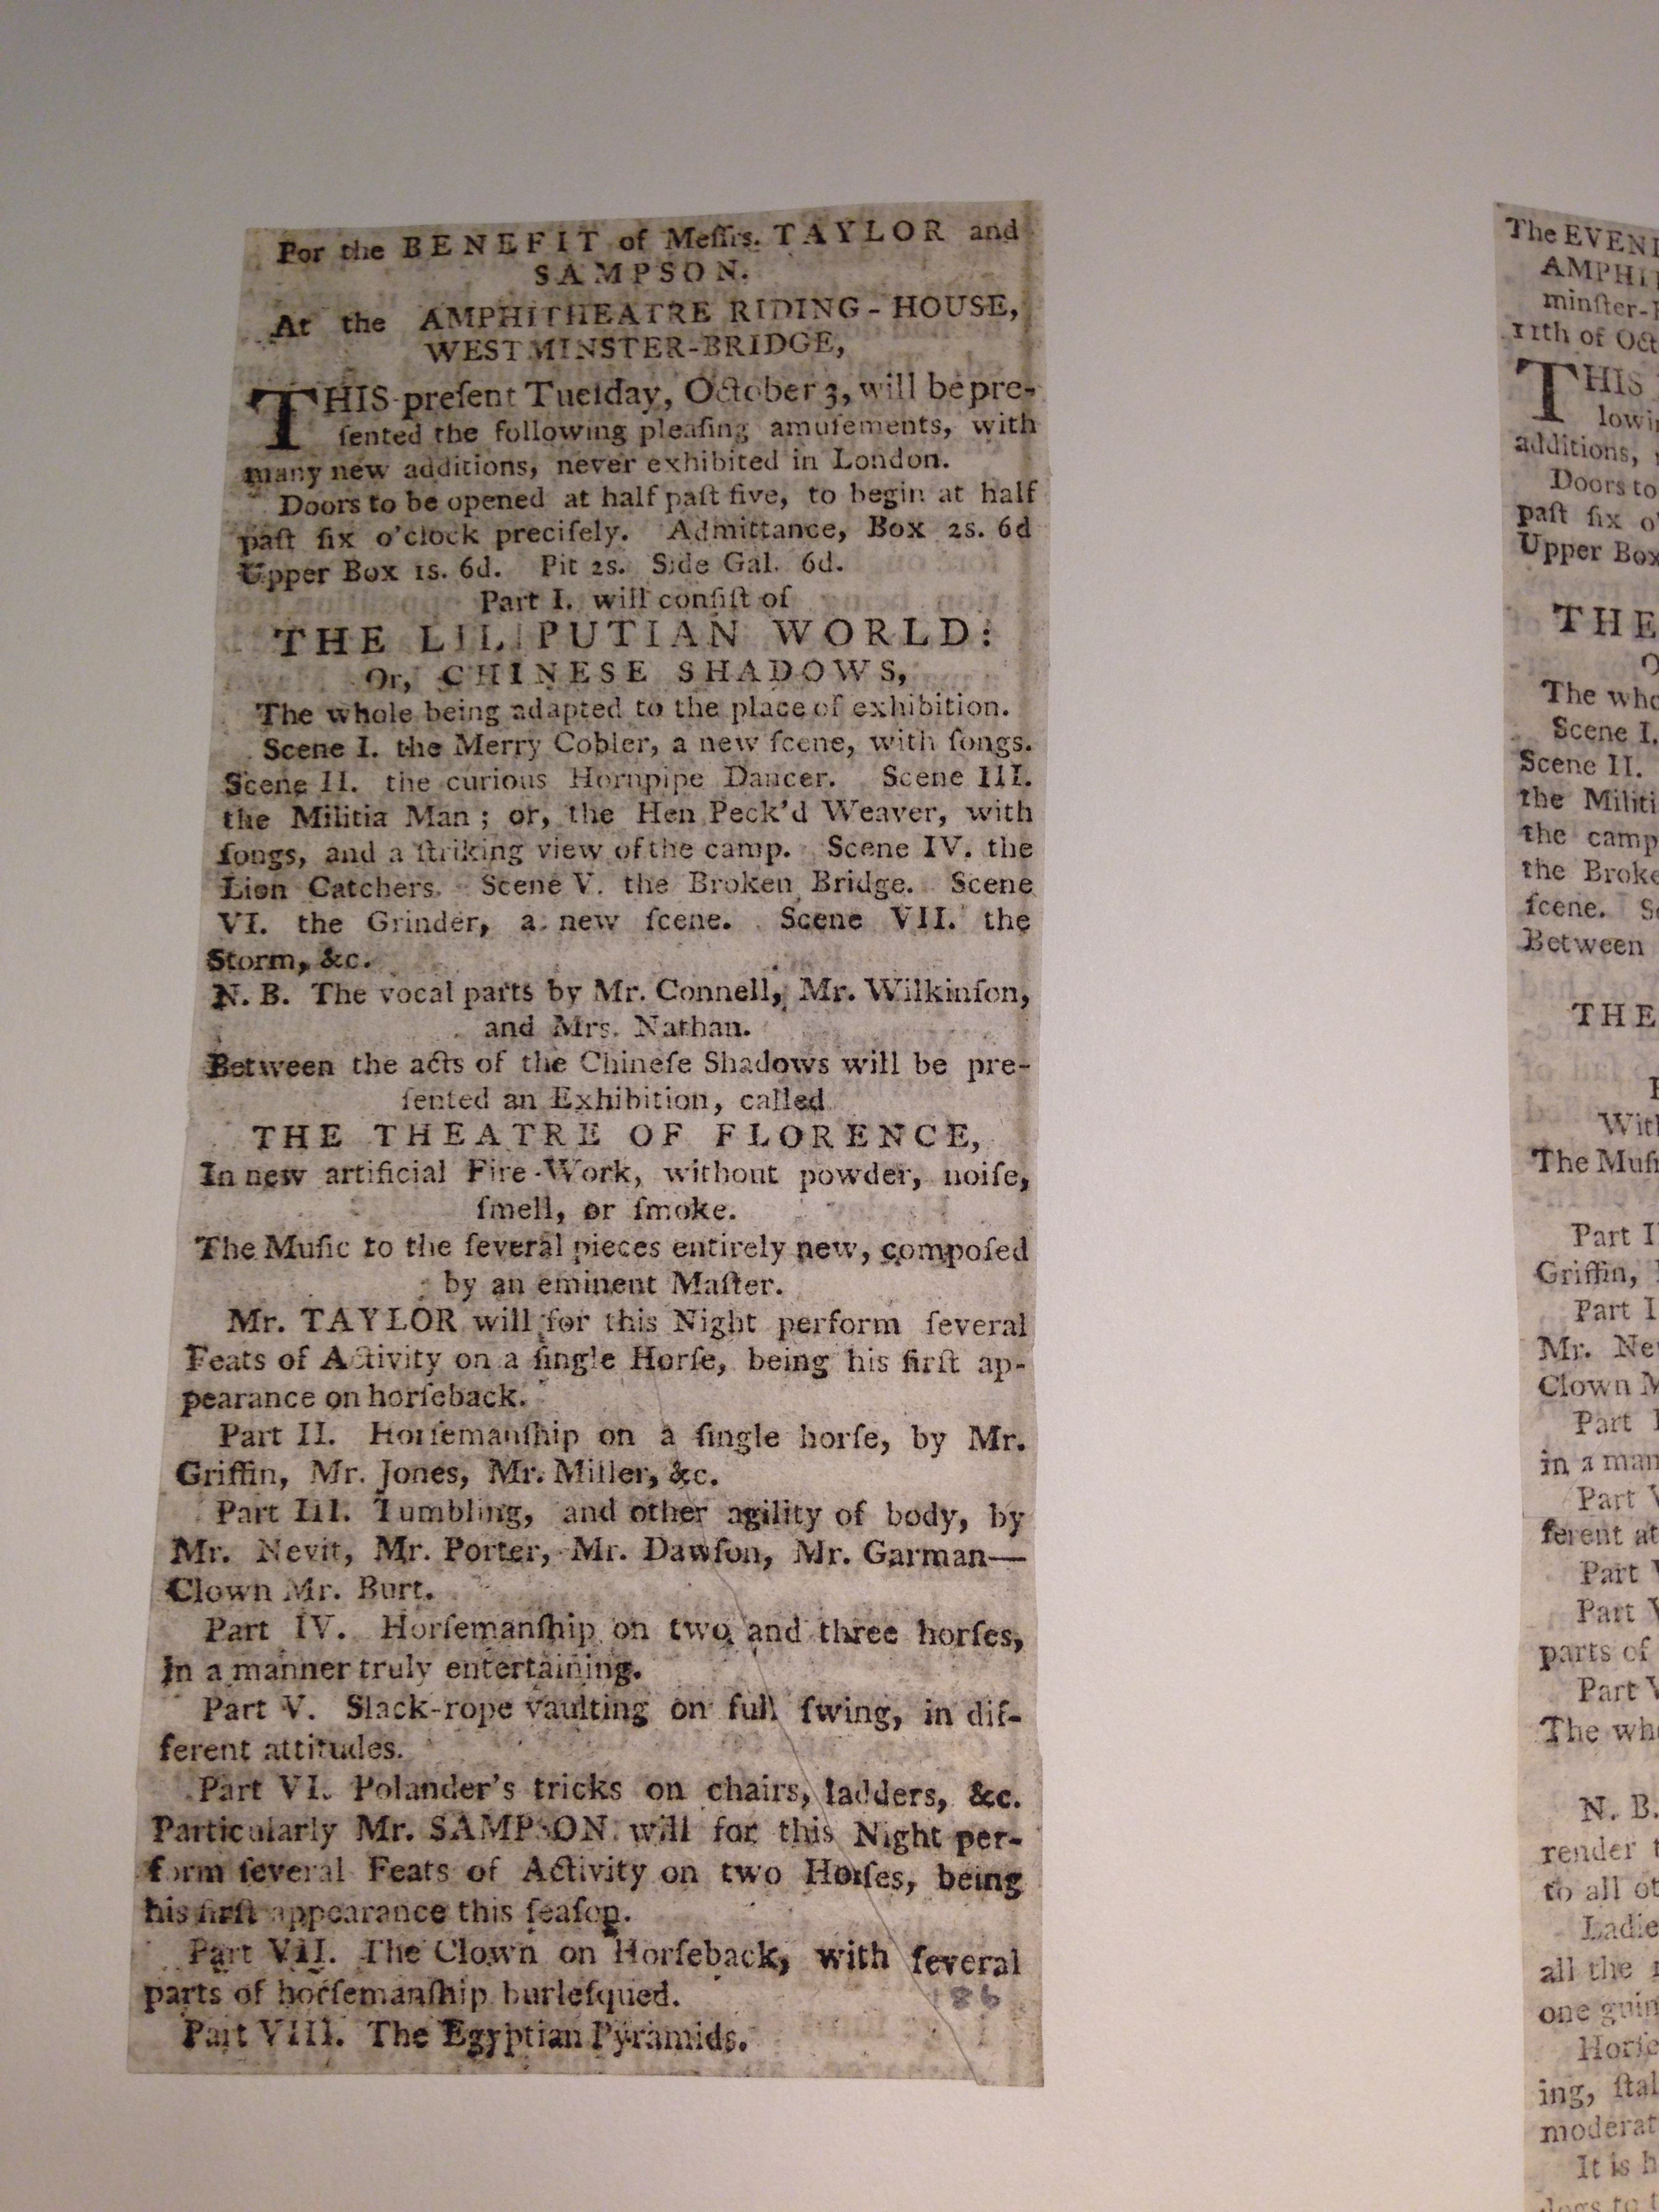 For the BENEFIT of Meſſrs. TAYLOR and
SAMPSON.
At the AMPHITHEATRE RIDING-HOUSE,
WESTMINSTER-BRIDGE,
THIS preſent Tueſday, October 3, will be pre-
ſented the following pleaſing amuſements, with
many new additions, never exhibited in London.
Doors to be opened at half paſt five, to begin at half
paſt ſix o'clock preciſely. Admittance, Box 2s. 6d
Upper Box 1s. 6d. Pit 2s. Side Gal. 6d.
Part I. will conſiſt of
THE LILIPUTIAN WORLD:
Or, CHINESE SHADOWS,
The whole being adapted to the place of exhibition.
Scene I. the Merry Cobler, a new ſcene, with ſongs.
Scene II. the curious Hornpipe Dancer. Scene III.
the Militia Man; or, the Hen Peck'd Weaver, with
ſongs, and a ſtriking view of the camp. Scene IV. the
Lion Catchers. Scene V. the Broken Bridge. Scene
VI. the Grinder, a new ſcene. Scene VII. the
Storm, &c.
N. B. The vocal parts by Mr. Connell, Mr. Wilkinſon,
and Mrs. Nathan.
Between the acts of the Chineſe Shadows will be pre-
ſented an Exhibition, called
THE THEATRE OF FLORENCE,
In new artificial Fire-Work, without powder, noiſe,
ſmell, or ſmoke.
The Muſic to the ſeveral pieces entirely new, compoſed
by an eminent Maſter.
Mr. TAYLOR will for this Night perform ſeveral
Feats of Activity on a ſingle Horſe, being his firſt ap-
pearance on horſeback.
Part II. Horſemanſhip on a ſingle horſe, by Mr.
Griffin, Mr. Jones, Mr. Miller, &c.
Part III. Tumbling, and other agility of body, by
Mr. Nevit, Mr. Porter, Mr. Dawſon, Mr. Garman—
Clown Mr. Burt.
Part IV. Horſemanſhip on two and three horſes,
in a manner truly entertaining.
Part V. Slack-rope vaulting on full ſwing, in dif-
ferent attitudes.
Part VI. Polander's tricks on chairs, ladders, &c.
Particularly Mr. SAMPSON will for this Night per-
form ſeveral Feats of Activity on two Horſes, being
his firſt appearance this ſeaſon.
Part VII. The Clown on Horſeback, with ſeveral
parts of horſemanſhip burleſqued.
Part VIII. The Egyptian Pyramids.
186
The EVENI
AMPHI
minſter-
11th of Oct
THIS
lowi
additions,
Doors to
paſt ſix o'
Upper Box
THE
O
The who
Scene I.
Scene II.
the Militi
the camp
the Broke
ſcene. S
Between
THE
With
The Muſi
Part I
Griffin,
Part I
Mr. Ne
Clown M
Part
in a man
Part V
ferent at
Part V
Part V
parts of
Part V
The wh
N. B.
render t
to all ot
Ladie
all the
one guin
Horſe
ing, ſtal
moderat
It is h
dogs to t